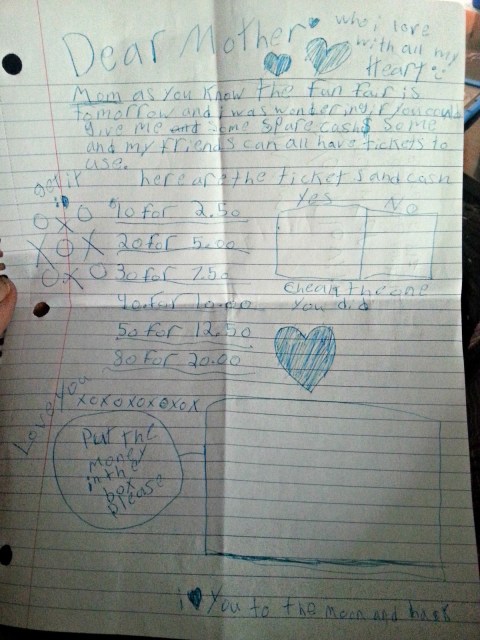 Dear Mother who i love
with all my
Heart
Mom as you know the fun fair is
tomorrow and i was wondering if you could
give me some spare cash$ so me
and my friends can all have tickets to
use.
get it
here are the tickets and cash
Yes No
O X O
X O X
O X O
10 for 2.50
20 for 5.00
30 for 7.50
40 for 10.00
50 for 12.50
80 for 20.00
Cheak the one
you did
Love you xoxoxoxoxox
Put the
money
in the
box
please
i you to the moon and back